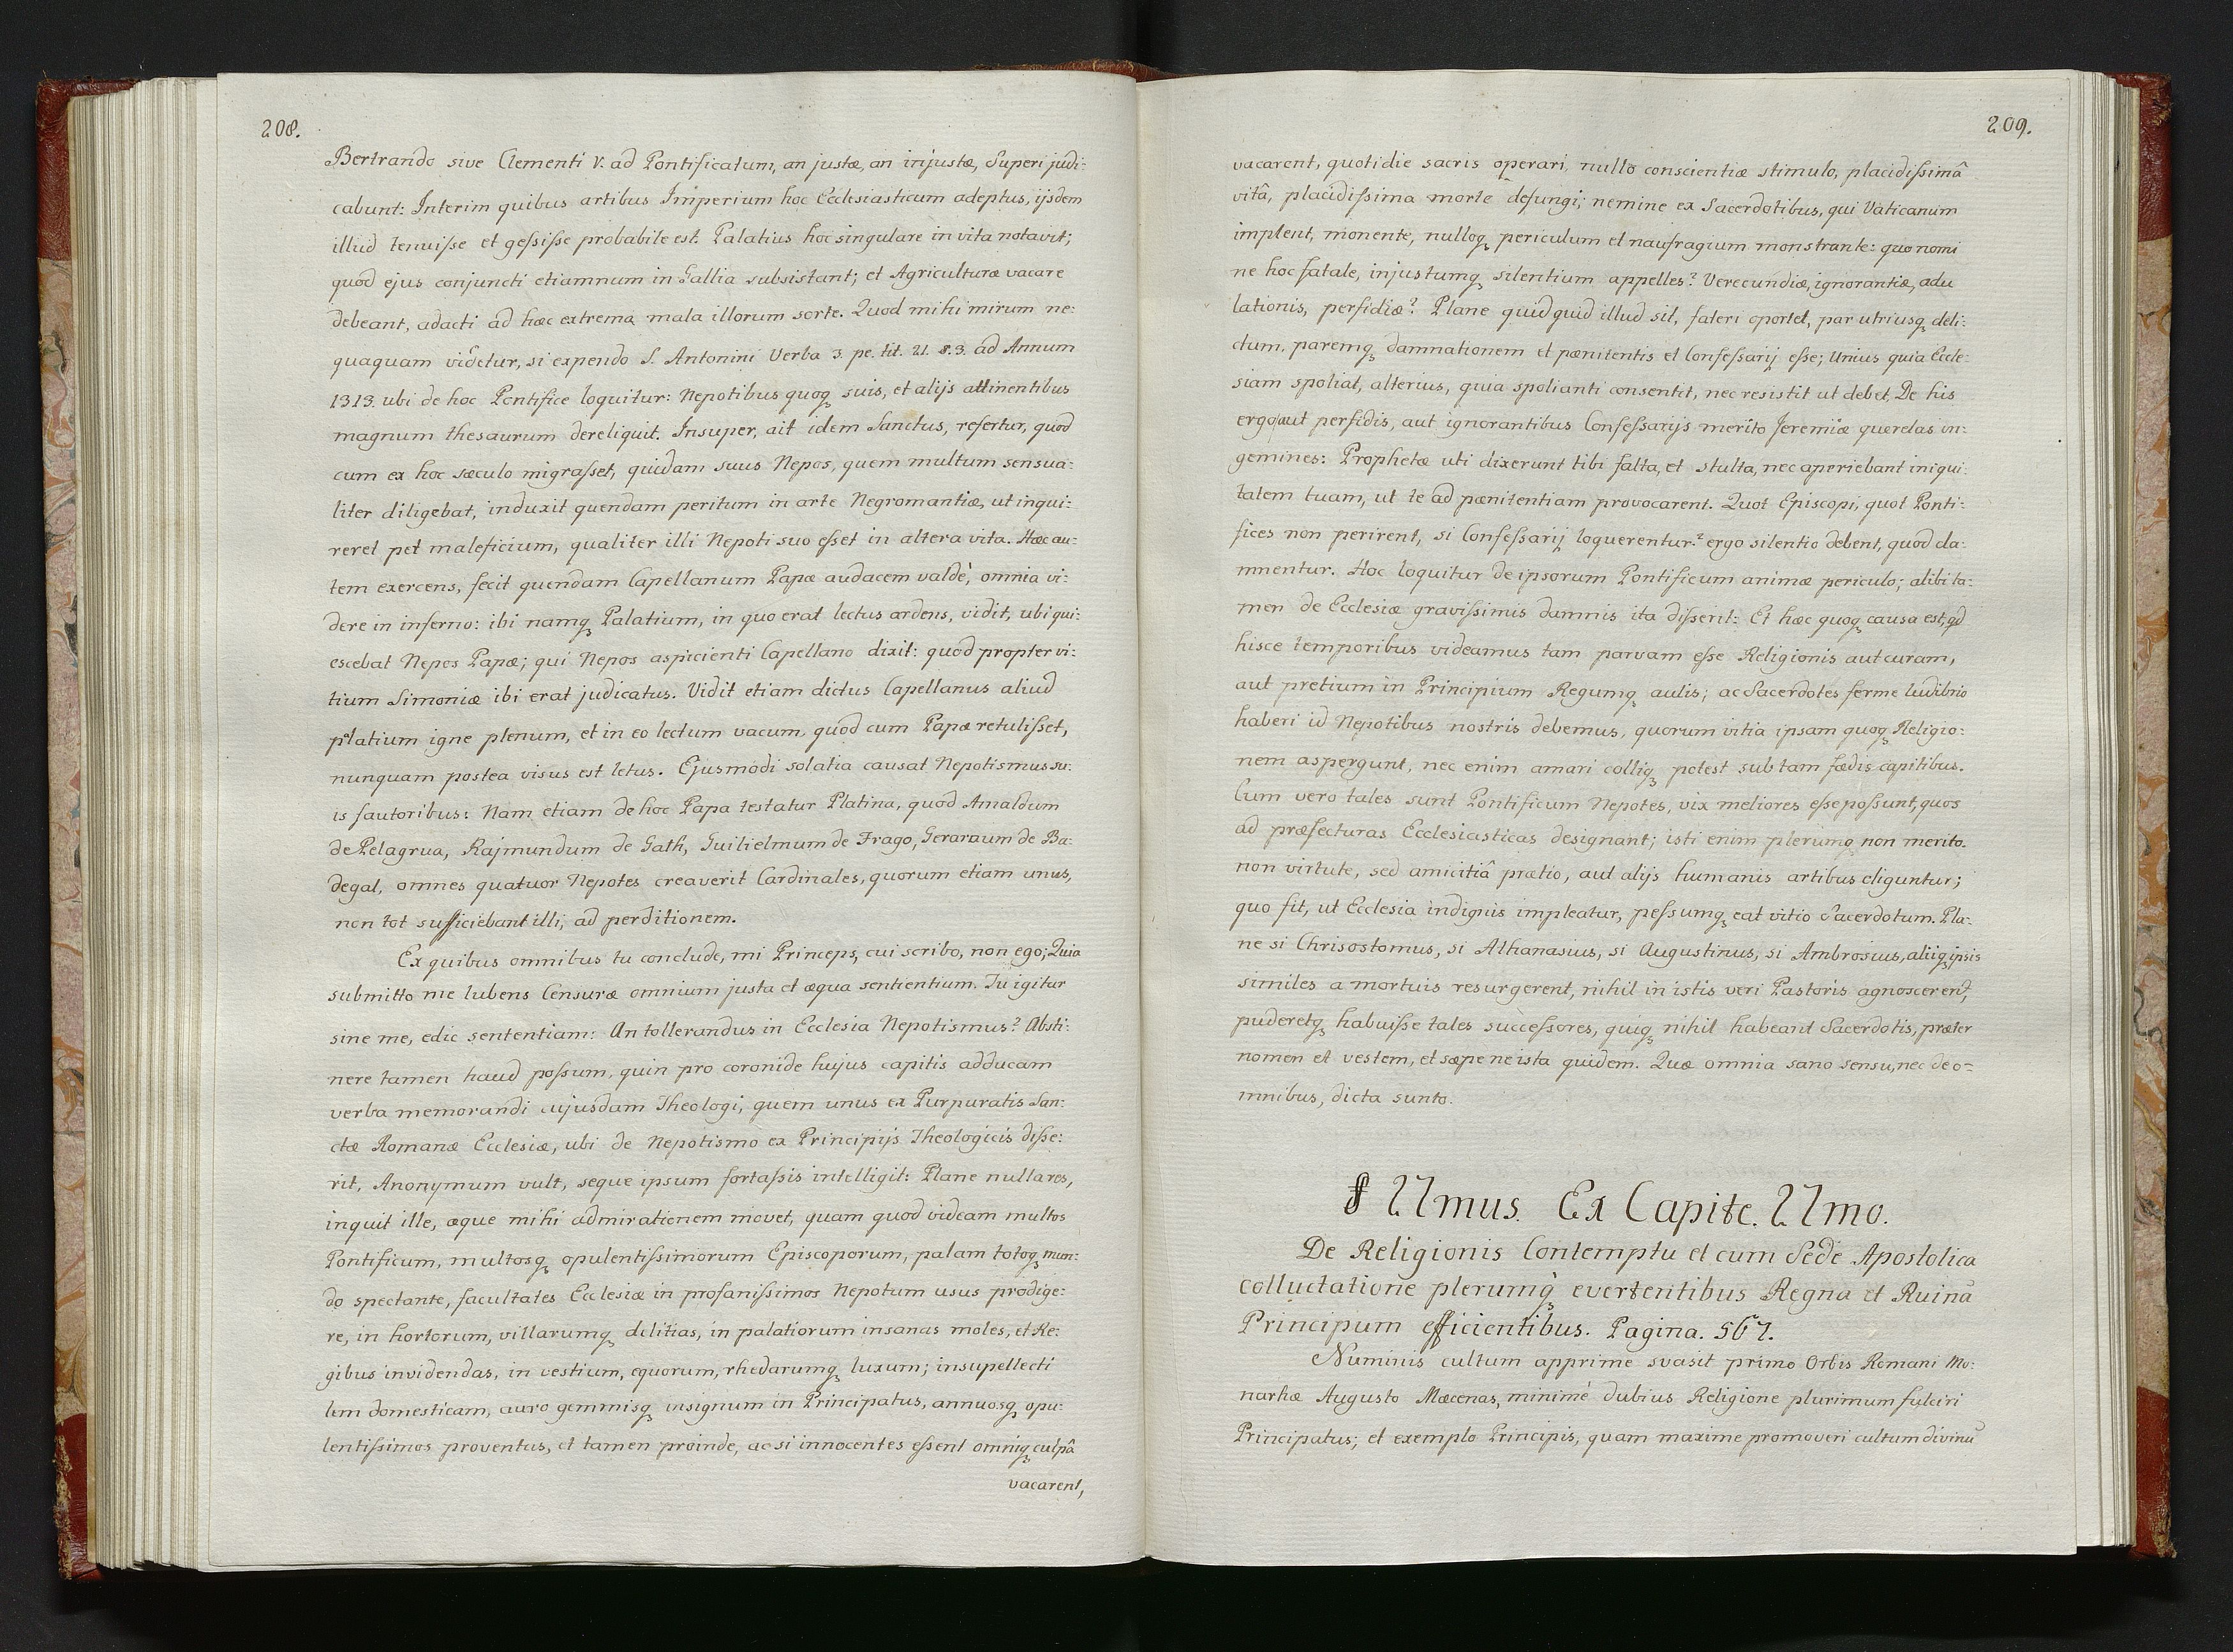 208.
Bertrando sive Clementi V. ad Pontificatum, an justæ, an injustæ, Superi judi:
cabunt: Interim quibus artibus Imperium hoc Ecclesiasticum adeptus, ijsdem
illud tenuisse et gessisse probabile est. Palatius hoc singulare in vita notavit;
quod ejus conjuncti etiamnum in Gallia subsistant; et Agriculturæ vacare
debeant, adacti ad hæc extrema mala illorum sorte. Quod mihi mirum ne:
quaquam videtur, si expendo S. Antonini Verba 3. pe. tit. 21. §. 3. ad Annum
1313. ubi de hoc Pontifice loquitur: Nepotibus quoqȝ suis, et alijs attinentibus
magnum thesaurum dereliquit. Insuper, ait idem Sanctus, refertur, quod
cum ex hoc sæculo migrasset, quidam suus Nepos, quem multum sensua:
liter diligebat, induxit quendam peritum in arte Negromantiæ, ut inqui:
reret pet maleficium, qualiter illi Nepoti suo esset in altera vita. Hæc au:
tem exercens, fecit quendam Capellanum Papæ audacem valdè, omnia vi:
dere in inferno: ibi namqȝ Palatium, in quo erat lectus ardens, vidit, ubi qui:
escebat Nepos Papæ; qui Nepos aspicienti Capellano dixit: quod propter vi:
tium Simoniæ ibi erat judicatus. Vidit etiam dictus Capellanus aliud
platium igne plenum, et in eo lectum vacum, quod cum Papæ retulisset,
nunquam postea visus est letus. Ejusmodi solatia causat Nepotismus su:
is fautoribus: Nam etiam de hoc Papa testatur Platina, quod Arnaldum
de Pelagrua, Rajmundum de Gath, Guilielmum de Frago, Geraraum de Ba:
degal, omnes quatuor Nepotes creaverit Cardinales, quorum etiam unus,
non tot sufficiebant illi, ad perditionem.
Ex quibus omnibus tu conclude, mi Princeps, cui scribo, non ego; Quia
submitto me lubens Censuræ omnium justa et æqua sentientium. Tu igitur
sine me, edic sententiam: An tollerandus in Ecclesia Nepotismus? Absti:
nere tamen haud possum, quin pro coronide hujus capitis adducam
verba memorandi cujusdam Theologi, quem unus ex Purpuratis San:
ctæ Romanæ Ecclesiæ, ubi de Nepotismo ex Principijs Theologicis disse:
rit, Anonymum vult, seque ipsum fortassis intelligit: Plane nulla res,
inquit ille, æque mihi admirationem movet, quam quod videam multos
Pontificum, multosqȝ opulentissimorum Episcoporum, palam totoqȝ mun:
do spectante, facultates Ecclesiæ in profanissimos Nepotum usus prodige:
re, in hortorum, villarumqȝ delitias, in palatiorum insanas moles, et Re:
gibus invidendas, in vestium, equorum, rhedarumqȝ luxum; insupellecti
lem domesticam, auro gemmisqȝ insignum in Principatus, annuosqȝ opu:
lentissimos proventus, et tamen proinde, ac si innocentes essent omniqȝ culpâ
vacarent,
209.
vacarent, quotidie sacris operari, nullo conscientiæ stimulo, placidissimâ
vitâ, placidissima morte defungi; nemine ex Sacerdotibus, qui Vaticanum
implent, monente, nulloqȝ periculum et naufragium monstrante: quo nomi
ne hoc fatale, injustumqȝ silentium appelles? Verecundiæ, ignorantiæ, adu
lationis, perfidiæ? Plane quidquid illud sit, fateri oportet, par utriusqȝ deli:
ctum, paremqȝ damnationem et pænitentis et Confessarij esse; Unius quia Eccle:
siam spoliat, alterius, quia spolianti consentit, nec resistit ut debet. De his
ergo aut perfidis, aut ignorantibus Confessarijs merito Jeremiæ querelas in:
gemines: Prophetæ uti dixerunt tibi falta, et stulta, nec aperiebant iniqui
tatem tuam, ut te ad pænitentiam provocarent. Quot Episcopi, quot Ponti:
fices non perirent, si Confessarij loquerentur? ergo silentio debent, quod da:
mnentur. Hoc loquitur de ipsorum Pontificum animæ periculo; alibi ta:
men de Ecclesiæ gravissimis damnis ita disserit: Et hæc quoqȝ causa est, qd
hisce temporibus videamus tam parvam esse Religionis aut curam,
aut pretium in Principium Regumqȝ aulis; ac Sacerdotes ferme ludibrio
haberi id Nepotibus nostris debemus, quorum vitia ipsam quoqȝ Religio:
nem aspergunt, nec enim amari colliqȝ potest sub tam fædis capitibus.
Cum vero tales sunt Pontificum Nepotes, vix meliores esse possunt, quos
ad præfecturas Ecclesiasticas designant; isti enim plerumqȝ non merito.
non virtute, sed amicitiâ prætio, aut alijs humanis artibus eliguntur;
quo fit, ut Ecclesia indignis impleatur, pessumqȝ eat vitio Sacerdotum. Pla:
ne si Chrisostomus, si Athanasius, si Augustinus, si Ambrosius, aliiqȝ ipsis
similes a mortuis resurgerent, nihil in istis veri Pastoris agnoscerent,
puderetqȝ habuisse tales successores, quiqȝ nihil habeant Sacerdotis, præter
nomen et vestem, et sæpe ne ista quidem. Quæ omnia sano sensu, nec de o=
mnibus, dicta sunto.
§ 22mus. Ex Capite. 22mo.
De Religionis Contemptu et cum Sede Apostolica
colluctatione plerumqȝ evertentibus Regna et Ruinā
Principum efficientibus. Pagina. 567.
Numinis cultum apprime svasit primo Orbis Romani Mo:
narhæ Augusto Mæcenas, minimè dubius Religione plurimum fulciri
Principatus; et exemplo Principis, quam maxime promoveri cultum divinū